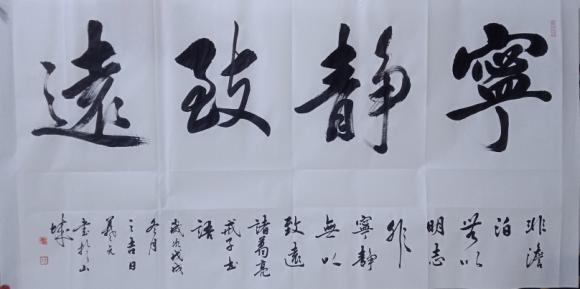 寧靜致遠
非澹
泊
無以
明志
非
寧靜
無以
致遠
諸葛亮
戒子書
語
歲次戊戌
冬月
之吉日
義天
書於山
城